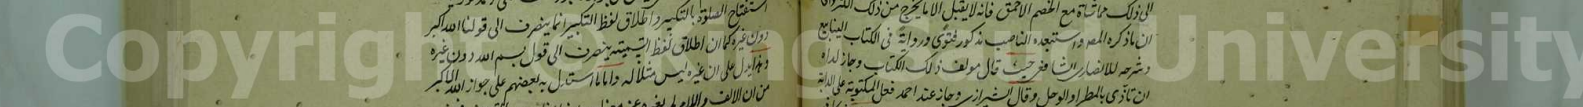 الى ذلك مماشاة مع الخصم الاحمق فانه لا يقبل الا ما يخرج من ذلك
ان ما ذكره المص واستبعده الناصب مذكور فتوى ورواية فى الكتاب الينابيع
وشرحه للانصارى الشا فعى حيث قال مولف ذلك الكتاب وجاز لداه
ان تاذى بالمطر او الوحل وقال الشيرازى وجاز عند احمد فعل المكتوبة على الدابة
استفتاح الصلوة بالتكبير واطلاق لفظ التكبير انما ينصرف الى قولنا الله اكبر
دون غيره كما ان اطلاق لفظ التسمية ينصرف الى قول بسم الله دون غيره
وهذا يدل على ان غيره ليس مثلا له واما ما استدل به بعضهم على جواز الله الاكبر
من ان الالف واللام لم يغيره عن
Copyright King Saud University